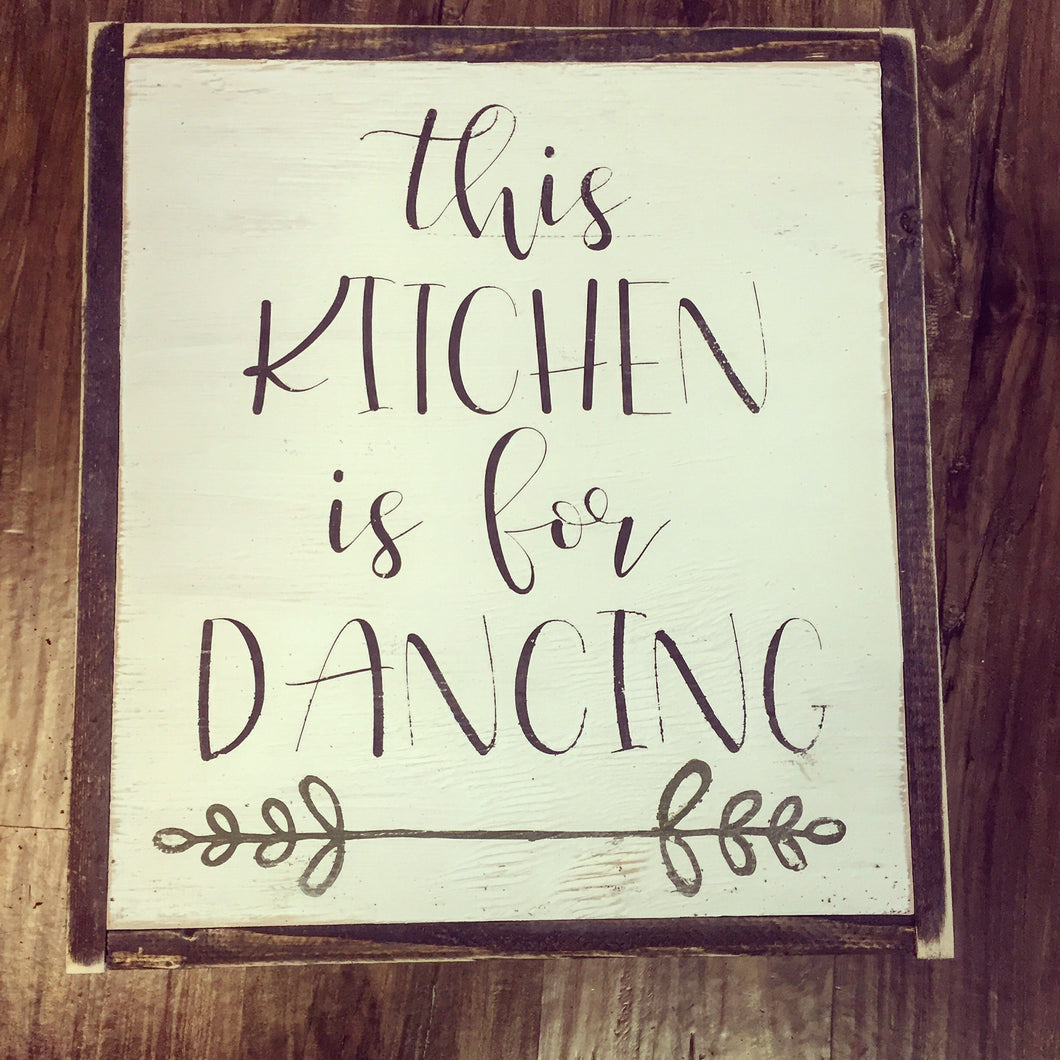 this
KITCHEN
is for
DANCING